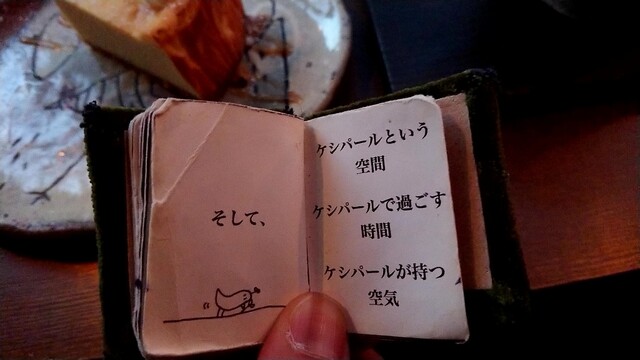 そして、
ケシパールという
空間
ケシパールで過ごす
時間
ケシパールが持つ
空気